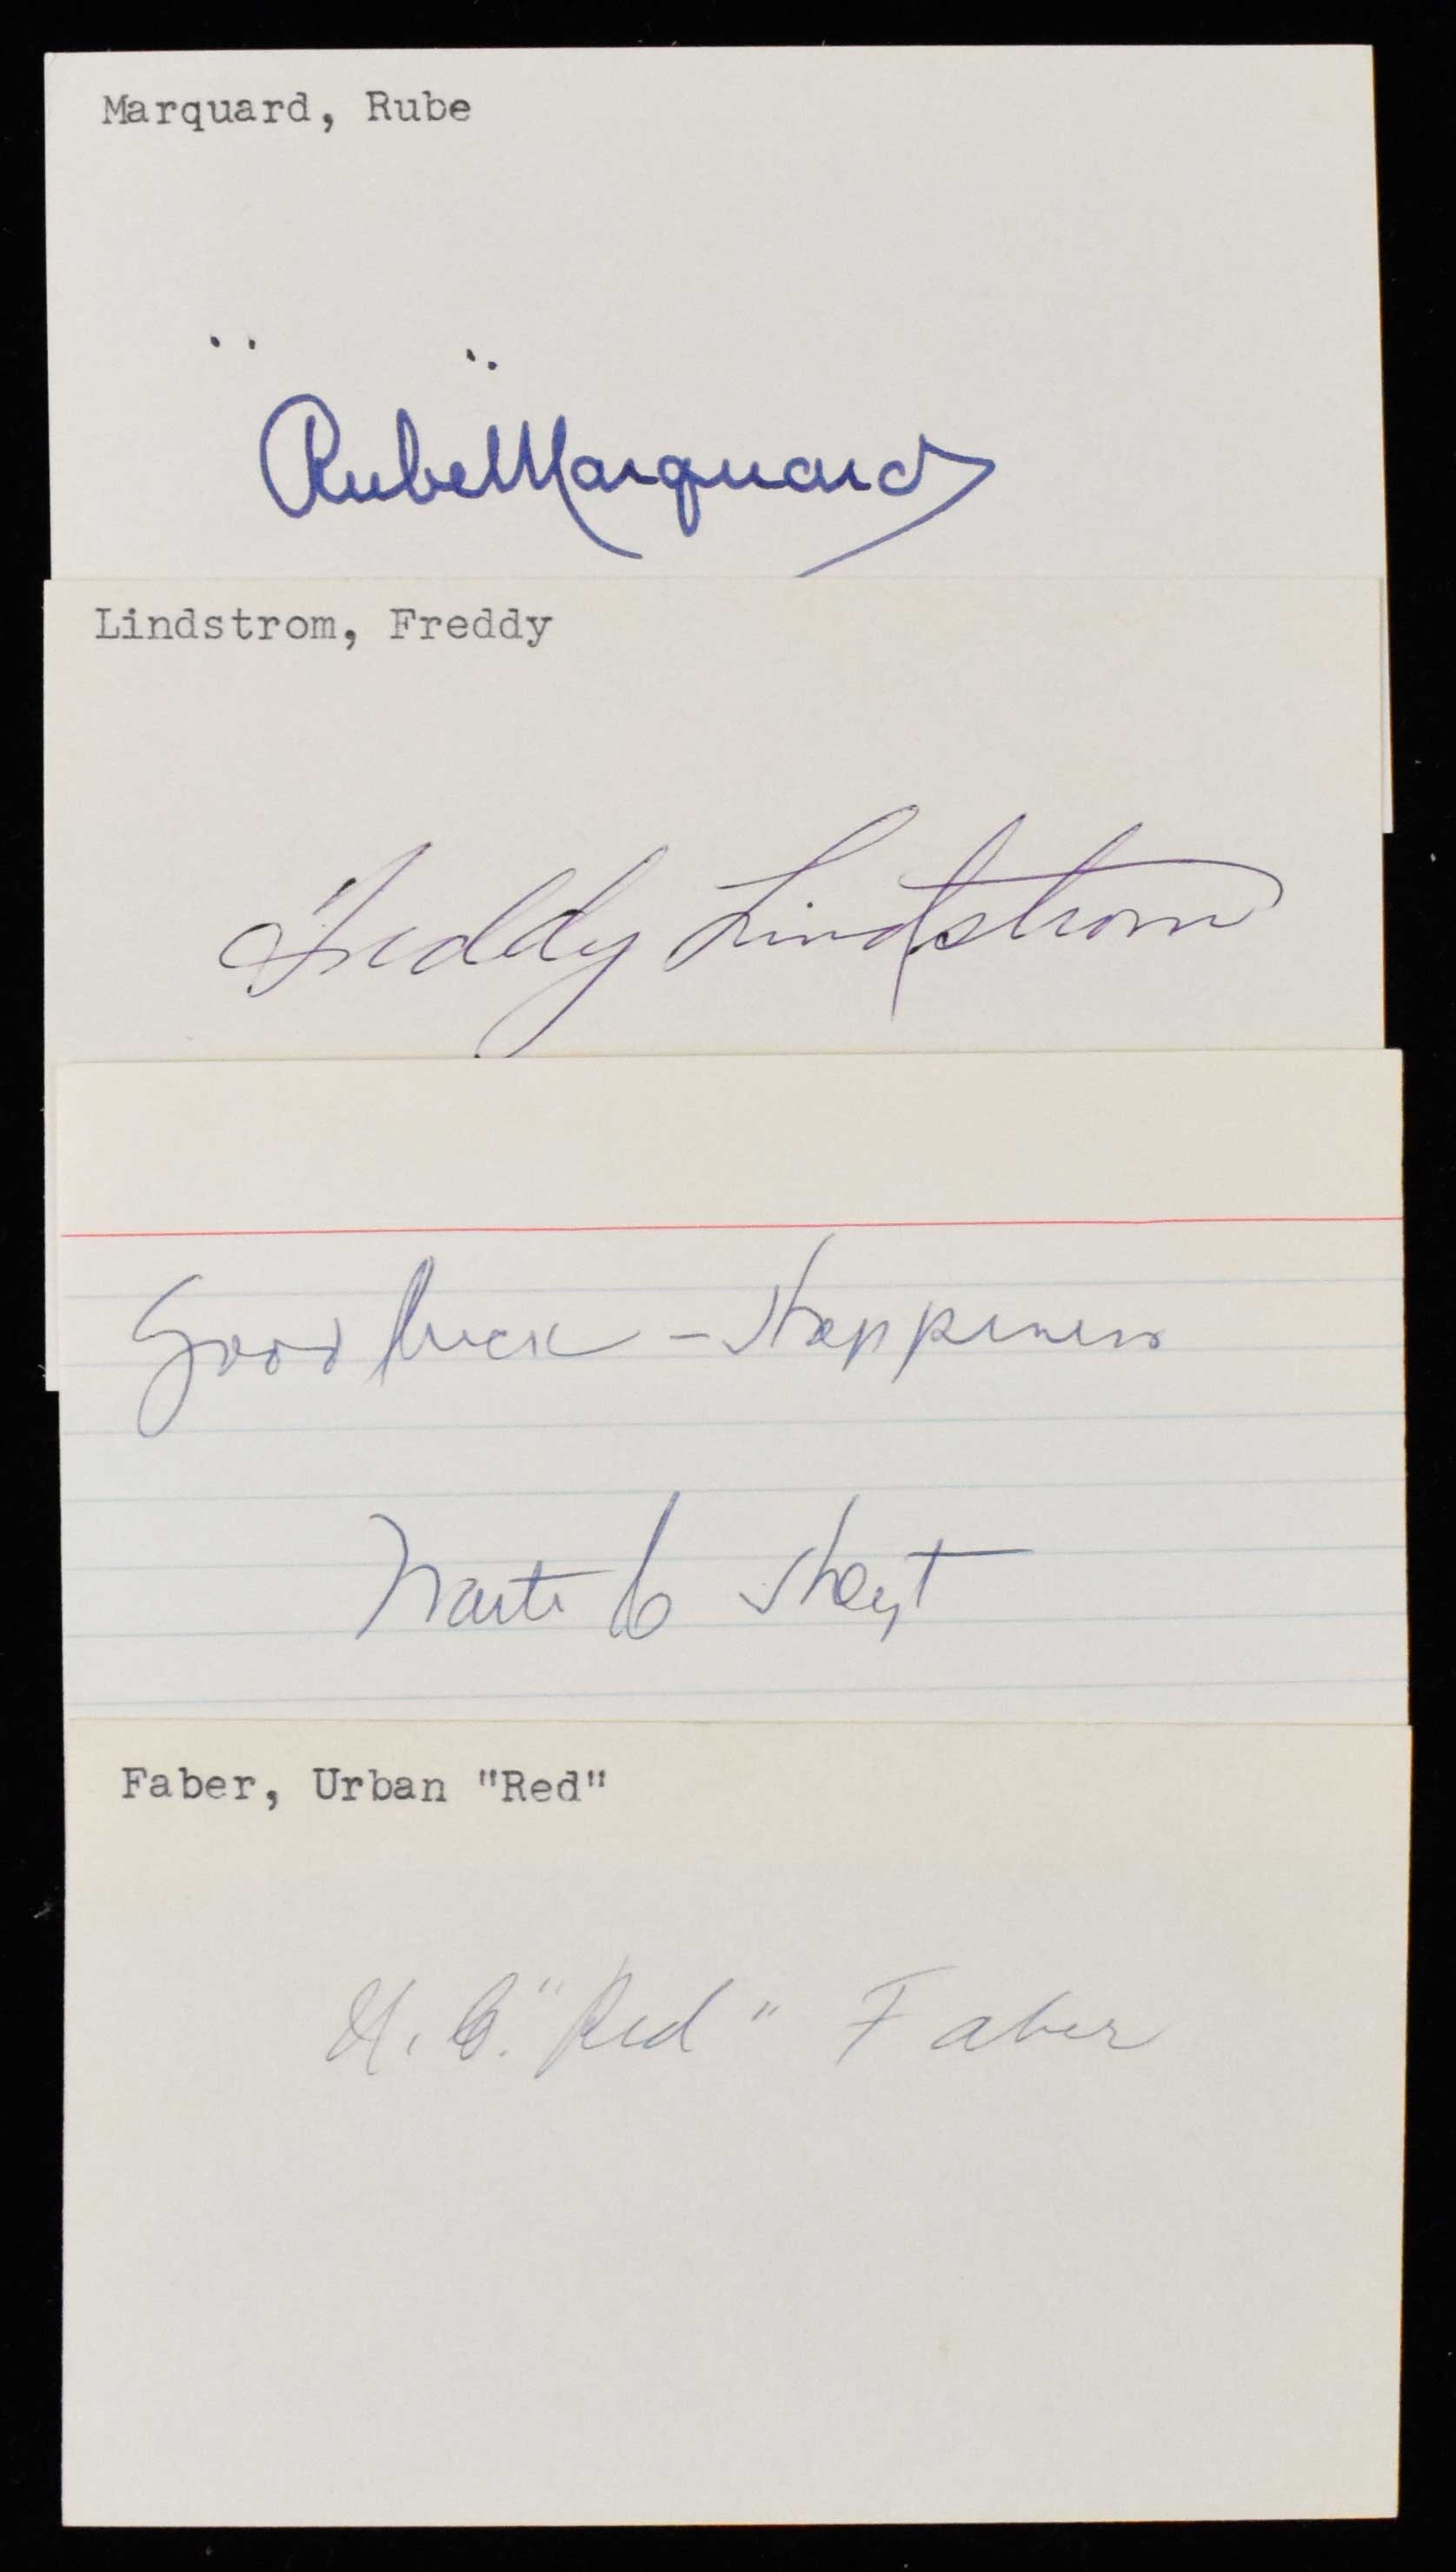 Marquard, Rube
Rube Marquard
Lindstrom, Freddy
Freddy Lindstrom
Good luck - Happiness
Waite Hoyt
Faber, Urban "Red"
U. C. "Red" Faber